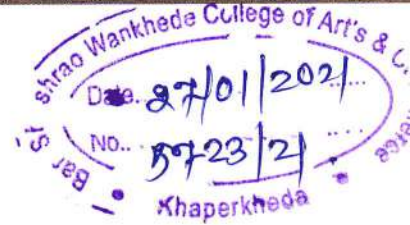 shrao Wankhede College of Art's &
Date. 27/01/2021
No.. 5723/21
Khaperkheda